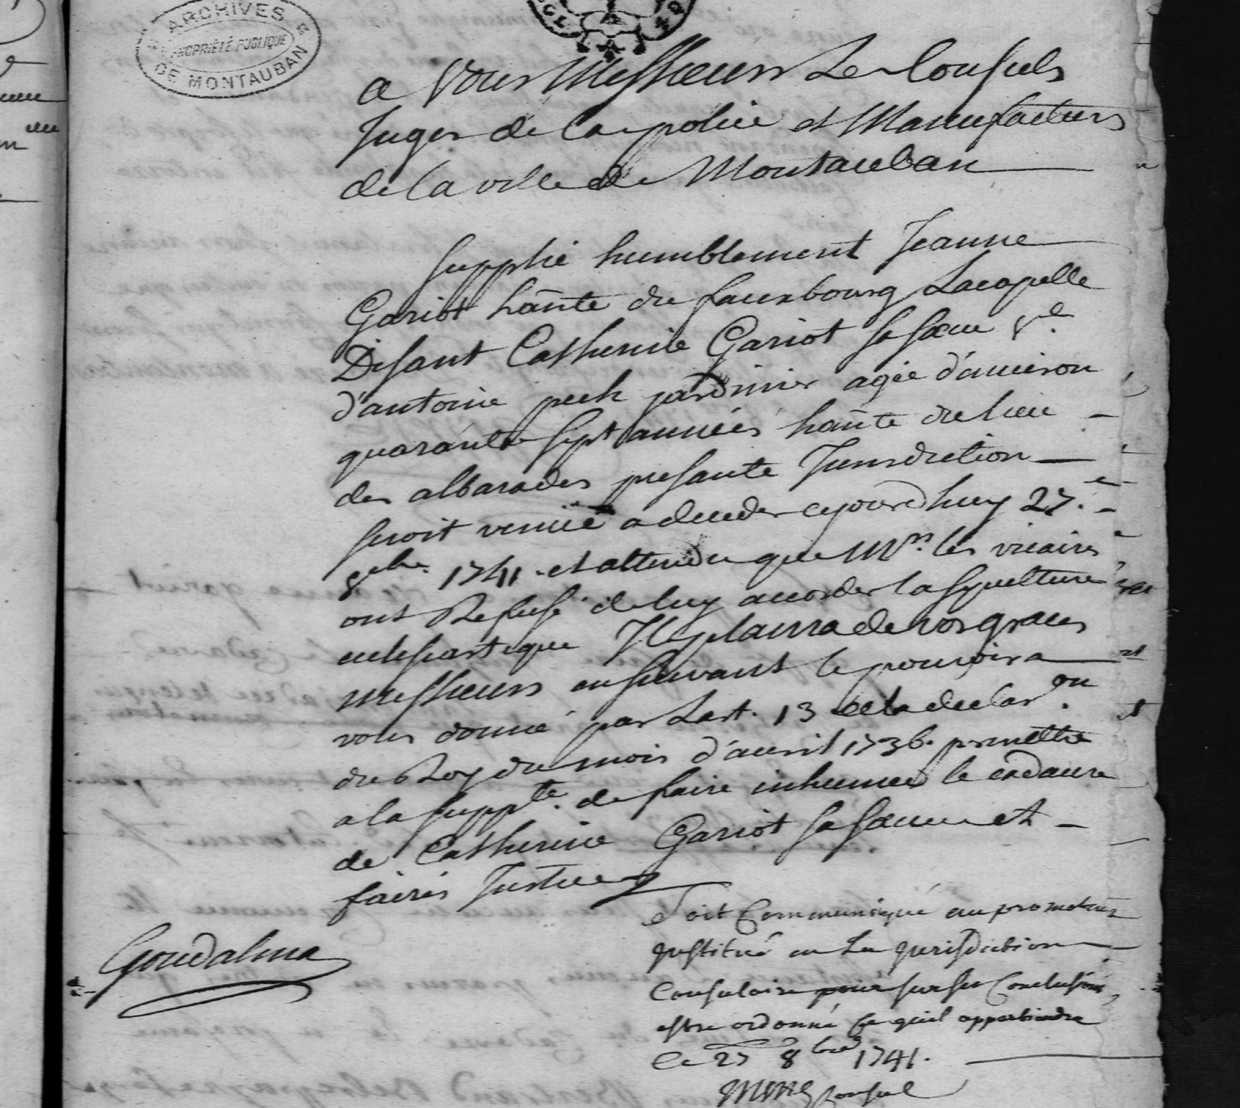 ARCHIVES
PROPRIÉTÉ PUBLIQUE
DE MONTAUBAN
a Vous Messieurs Les Consuls
Juges de la police et Manufactures
de la ville de Montauban
Supplie humblement Jeanne
Gariot hante du fauxbourg Lacapelle
Disant Catherine Gariot sa sœur
d'antoine pech jardinier agée d'anviron
quarante sept années hante du lieu
des albarades presante Jurisdiction
seroit venue a deceder ce jourdhuy 27e
8bre 1741 et attendu que Mrs les vicaires
ont Refusé de luy accorder la sepulture
eclesiastique Il plaira de vos graces
Messieurs en suivant le pouvoir a
vous donné par Lart. 13 de la declaron
du Roy du mois d'auril 1736 permettre
a la suppte de faire inhumer le cadavre
de Catherine Gariot sa sœur et
faires Justice
Goudalma
Soit Communiqué au promoteur
institué en La Jurisdiction
Consulaire pour sur ses Conclusions
estre ordonné Ce quil appartiendra
Ce 27 8bre 1741.
Consul